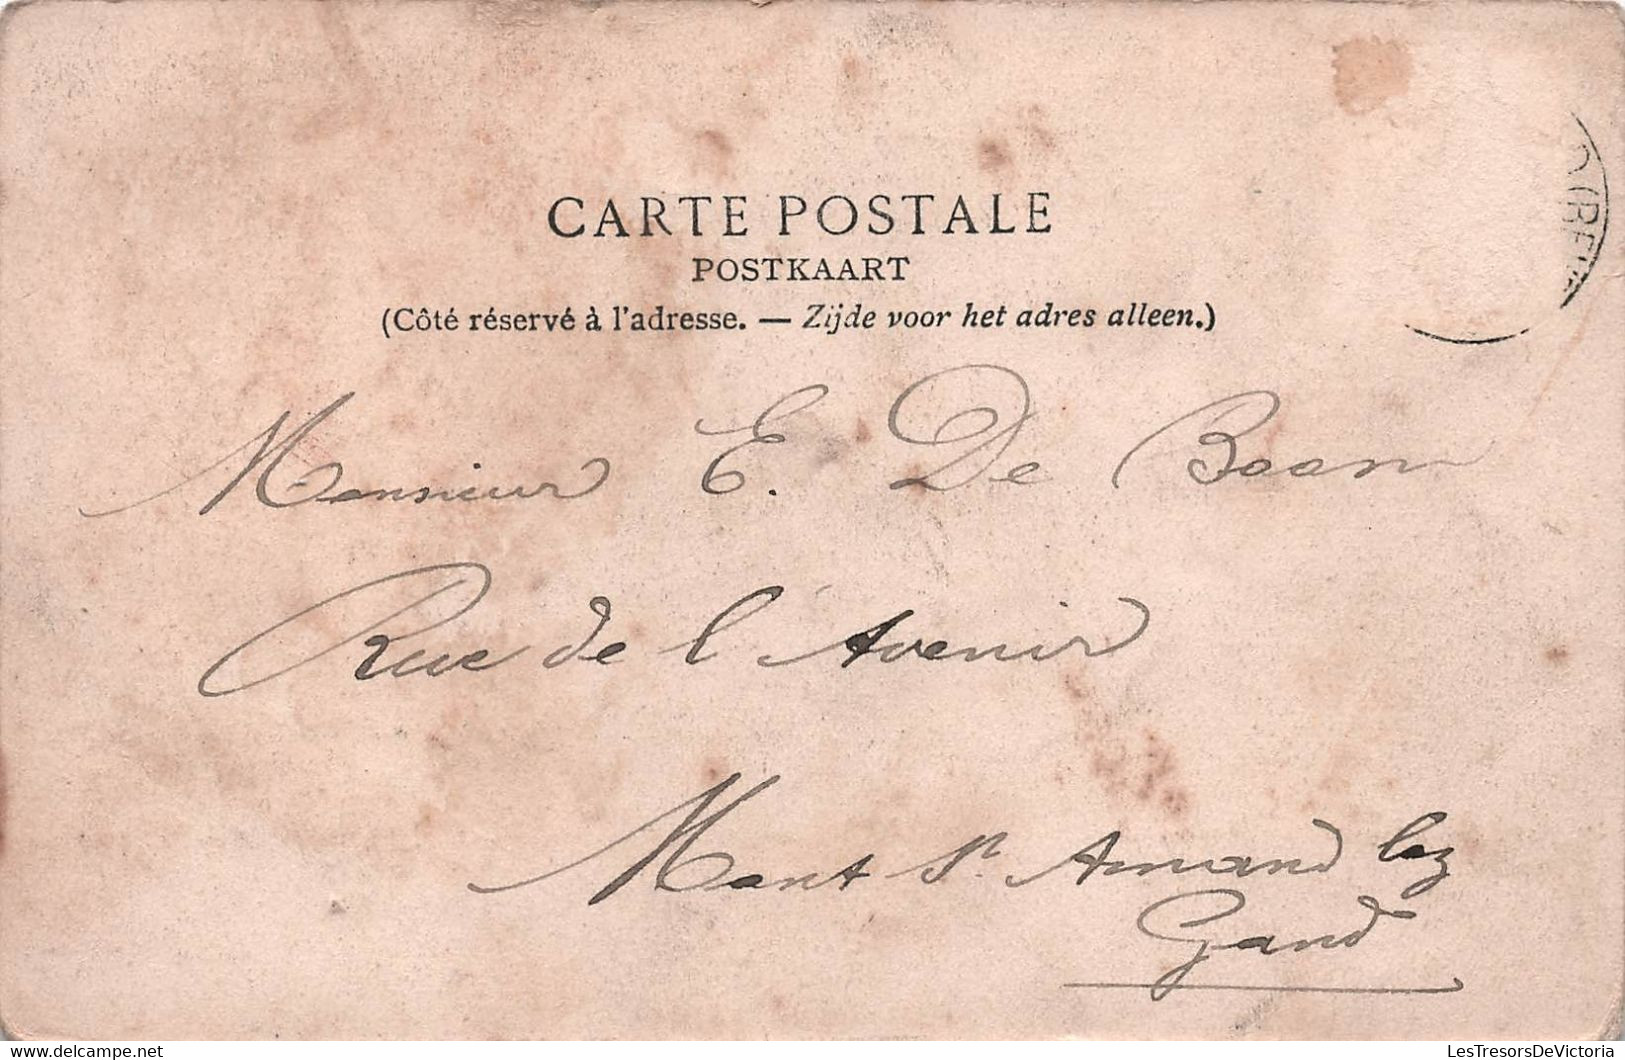 CARTE POSTALE
POSTKAART
(Côté réservé à l'adresse. — Zijde voor het adres alleen.)
Monsieur E. De Boom
Rue de l'Avenir
Mont St. Amand lez
Gand
delcampe.net
LesTresorsDeVictoria